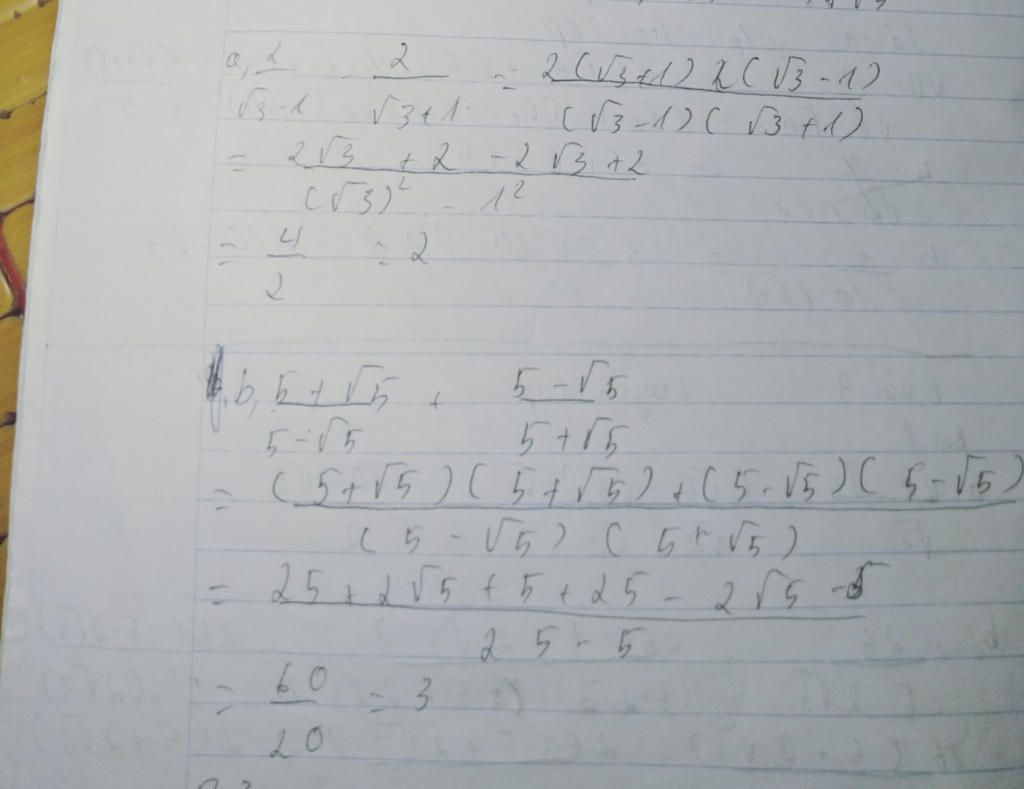 a, 2/(√3-1) - 2/(√3+1) = (2(√3+1) 2(√3-1))/((√3-1)(√3+1))
= (2√3 + 2 - 2√3 + 2)/((√3)² - 1²)
= 4/2 = 2
b, (5+√5)/(5-√5) + (5-√5)/(5+√5)
= ((5+√5)(5+√5)+(5-√5)(5-√5))/((5-√5)(5+√5))
= (25+2√5+5+25-2√5-5)/(25-5)
= 60/20 = 3